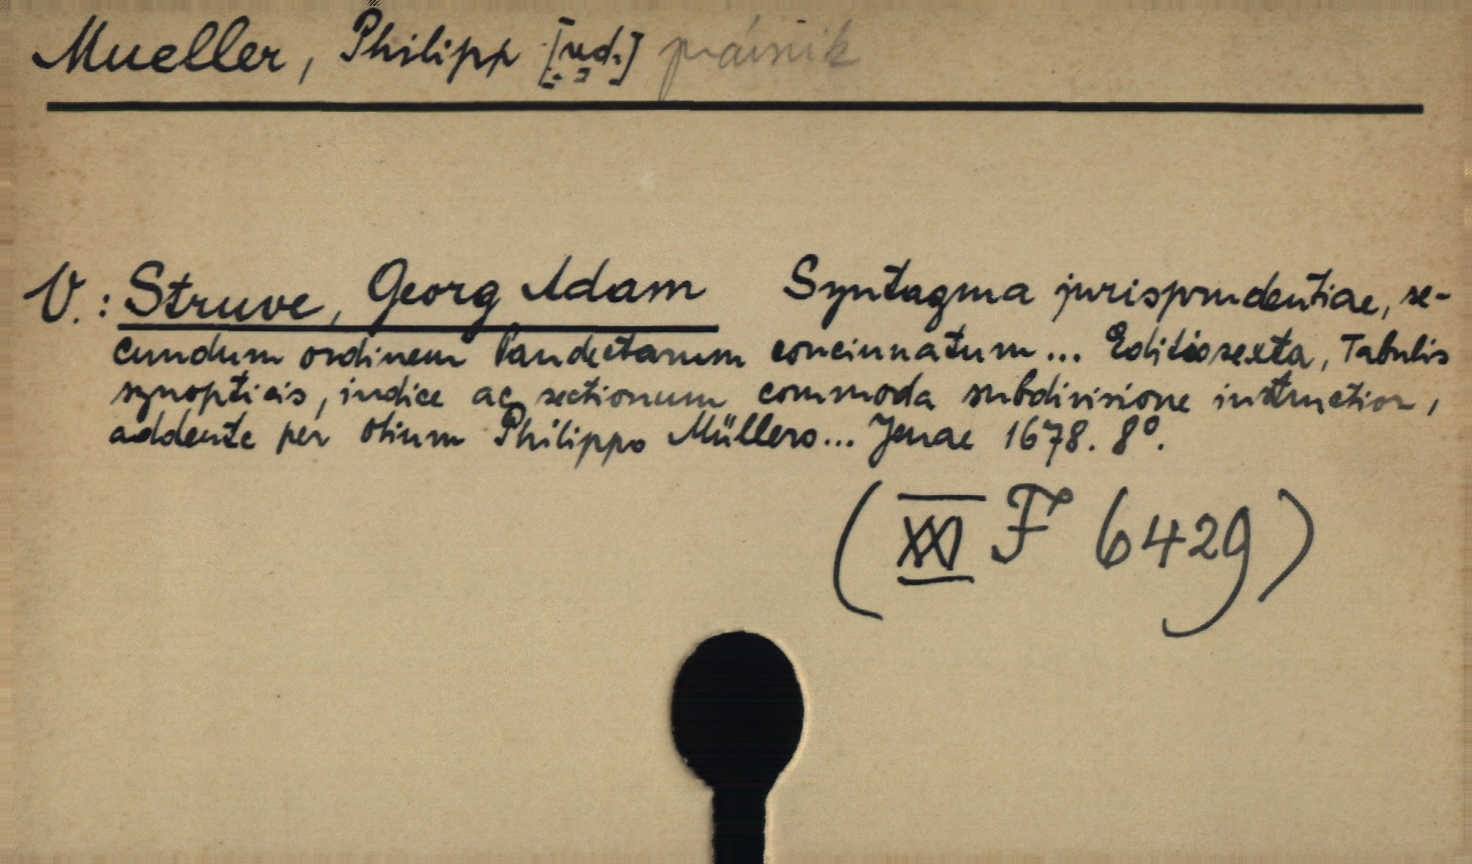 Mueller, Philipp [red.] právnik
V.: Struve, Georg Adam Syntagma jurisprudentiae, se-
cundum ordinem Pandectarum concinnatum... Editio sexta, Tabulis
synopticis, indice ac sectionum commoda subdivisione instructior,
addente per otium Philippo Müllero... Jenae 1678. 8º.
(XXI F 6429)